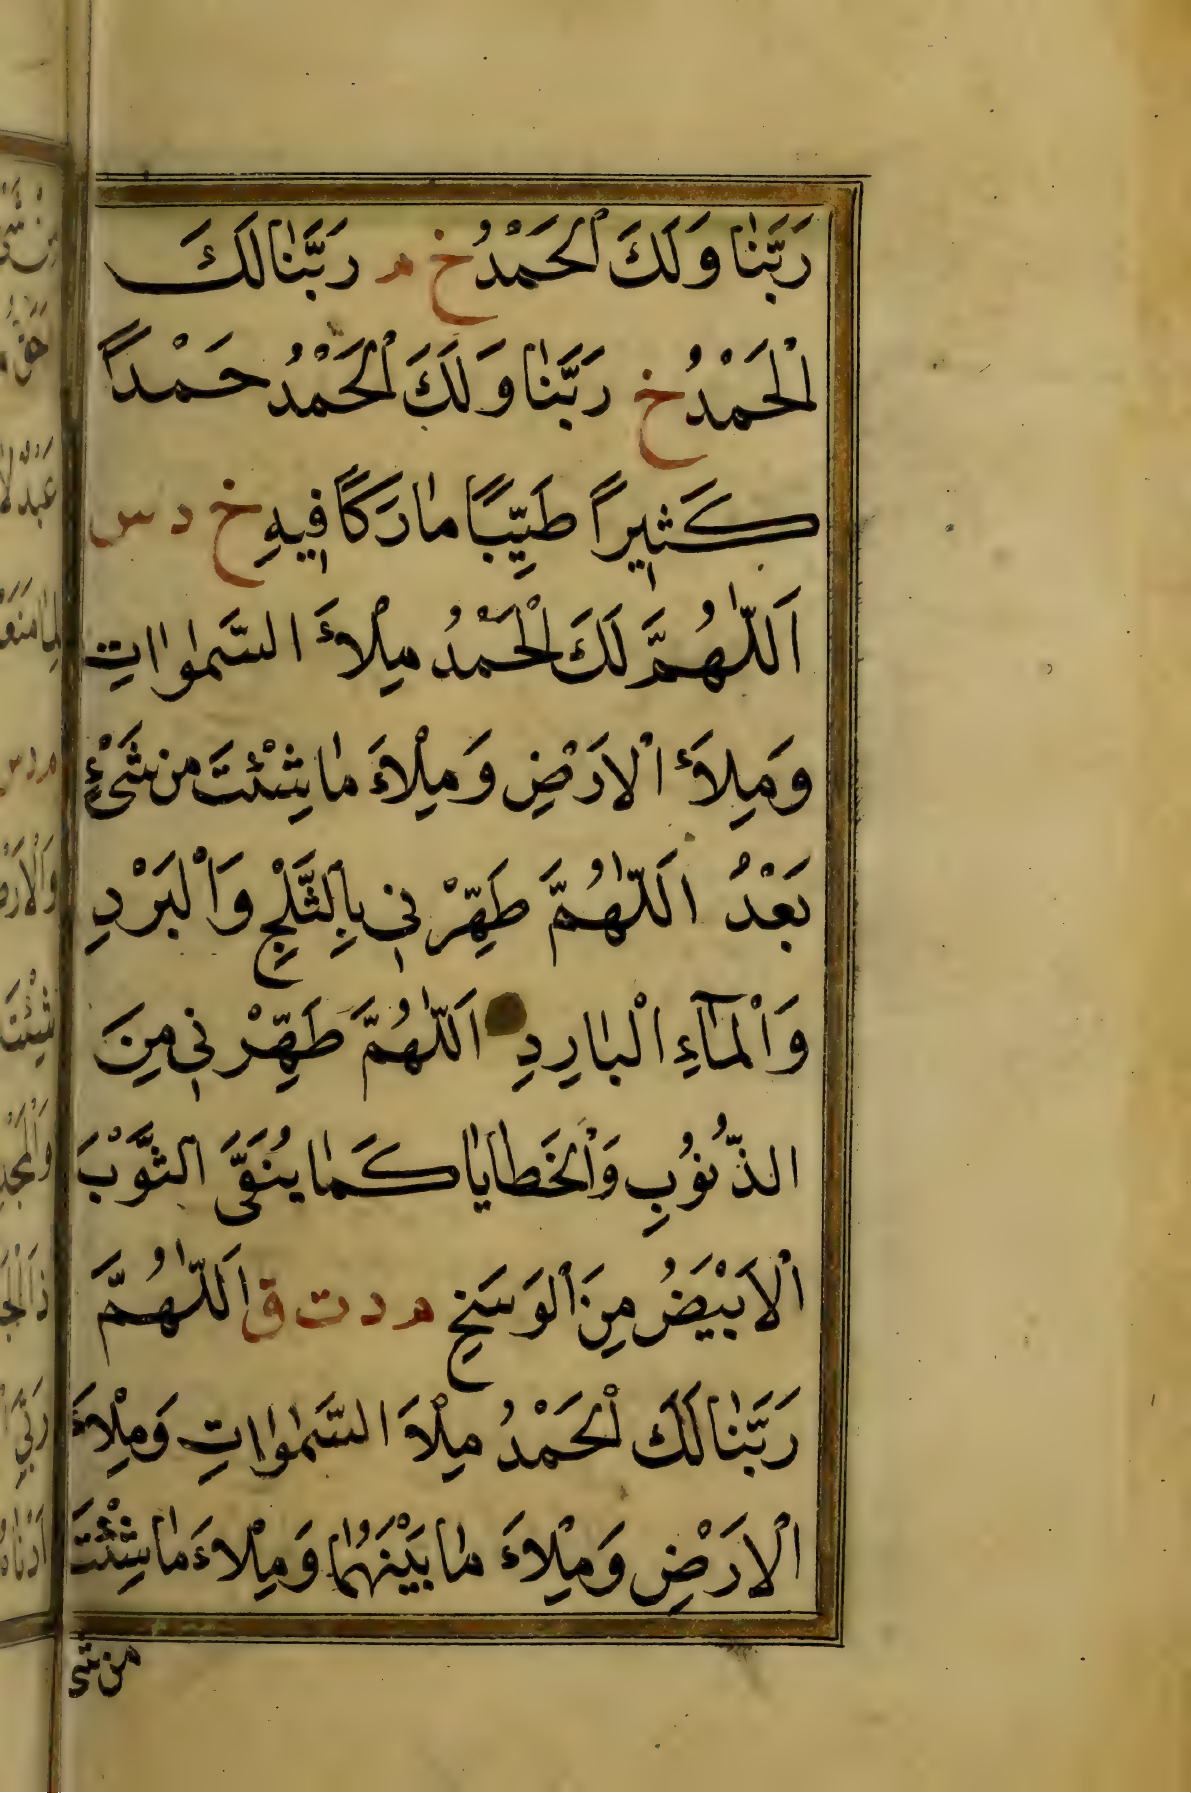 رَبَّنَا وَلَكَ الْحَمْدُ خ م رَبَّنَا لَكَ
الْحَمْدُ خ رَبَّنَا وَلَكَ الْحَمْدُ حَمْدًا
كَثِيرًا طَيِّبًا مُبَارَكًا فِيهِ خ د س
اَللّٰهُمَّ لَكَ الْحَمْدُ مِلْأَ السَّمٰوَاتِ
وَمِلَأَ الْاَرْضِ وَمِلْاءَ مَا شِئْتَ مِنْ شَیْءٍ
بَعْدُ اَللّٰهُمَّ طَهِّرْنِي بِالثَّلْجِ وَالْبَرْدِ
وَالْمَآءِ الْبَارِدِ اَللّٰهُمَّ طَهِّرْنِي مِنَ
الذُّنُوبِ وَالْخَطَايَا كَمَا يُنَقَّى الثَّوْبَ
الْاَبْيَضُ مِنَ الْوَسَخِ م د ت ق اَللّٰهُمَّ
رَبَّنَا لَكَ الْحَمْدُ مِلْاَ السَّمٰوَاتِ وَمِلْاءَ
الْاَرْضِ وَمِلْاءَ مَا بَيْنَهُمَا وَمِلْاءَ مَا شِئْتَ
من شی